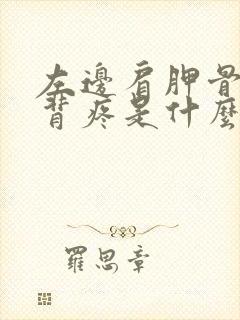 左邊肩胛骨
背疼是什麼
羅思章